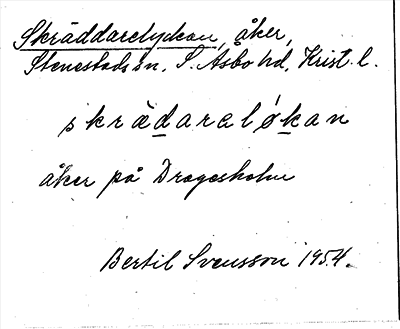 Skräddarelyckan, åker,
Stenestads sn, S. Åsbo hd, Krist. l.
skrädaraløkan
åker på Dragesholm
Bertil Svensson 1954.